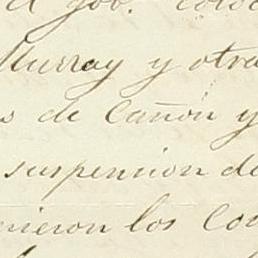 el gob.
Murray y otra
s de Cañon y
suspension de
nieron los Co